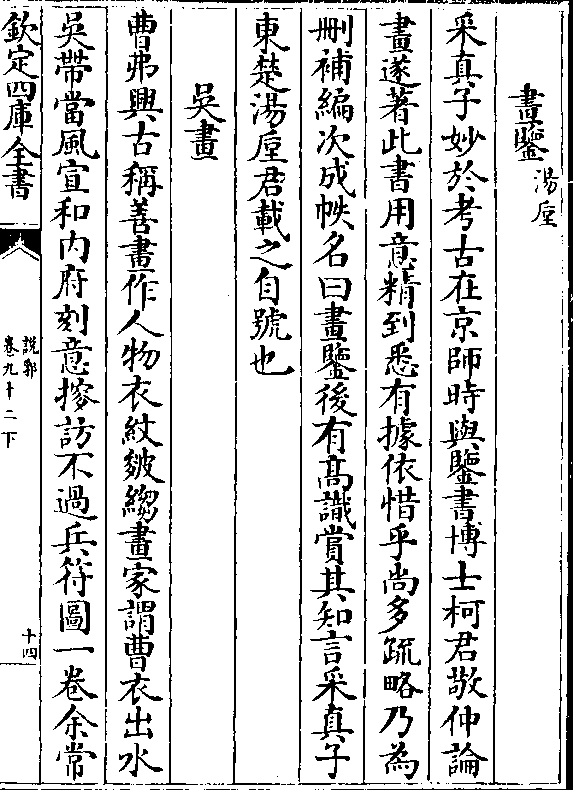 畫鑒湯垕
采真子妙於考古在京師時與鑒書博士柯君敬仲論
畫遂著此書用意精到悉有據依惜乎尚多疏略乃為
刪補編次成帙名曰畫鑒後有高識賞其知言采真子
東楚湯垕君載之自號也
吳畫
曹弗興古稱善畫作人物衣紋皴縐畫家謂曹衣出水
吳帶當風宣和内府刻意搜訪不過兵符圖一卷余常
欽定四庫全書
說郛
卷九十二下
十四